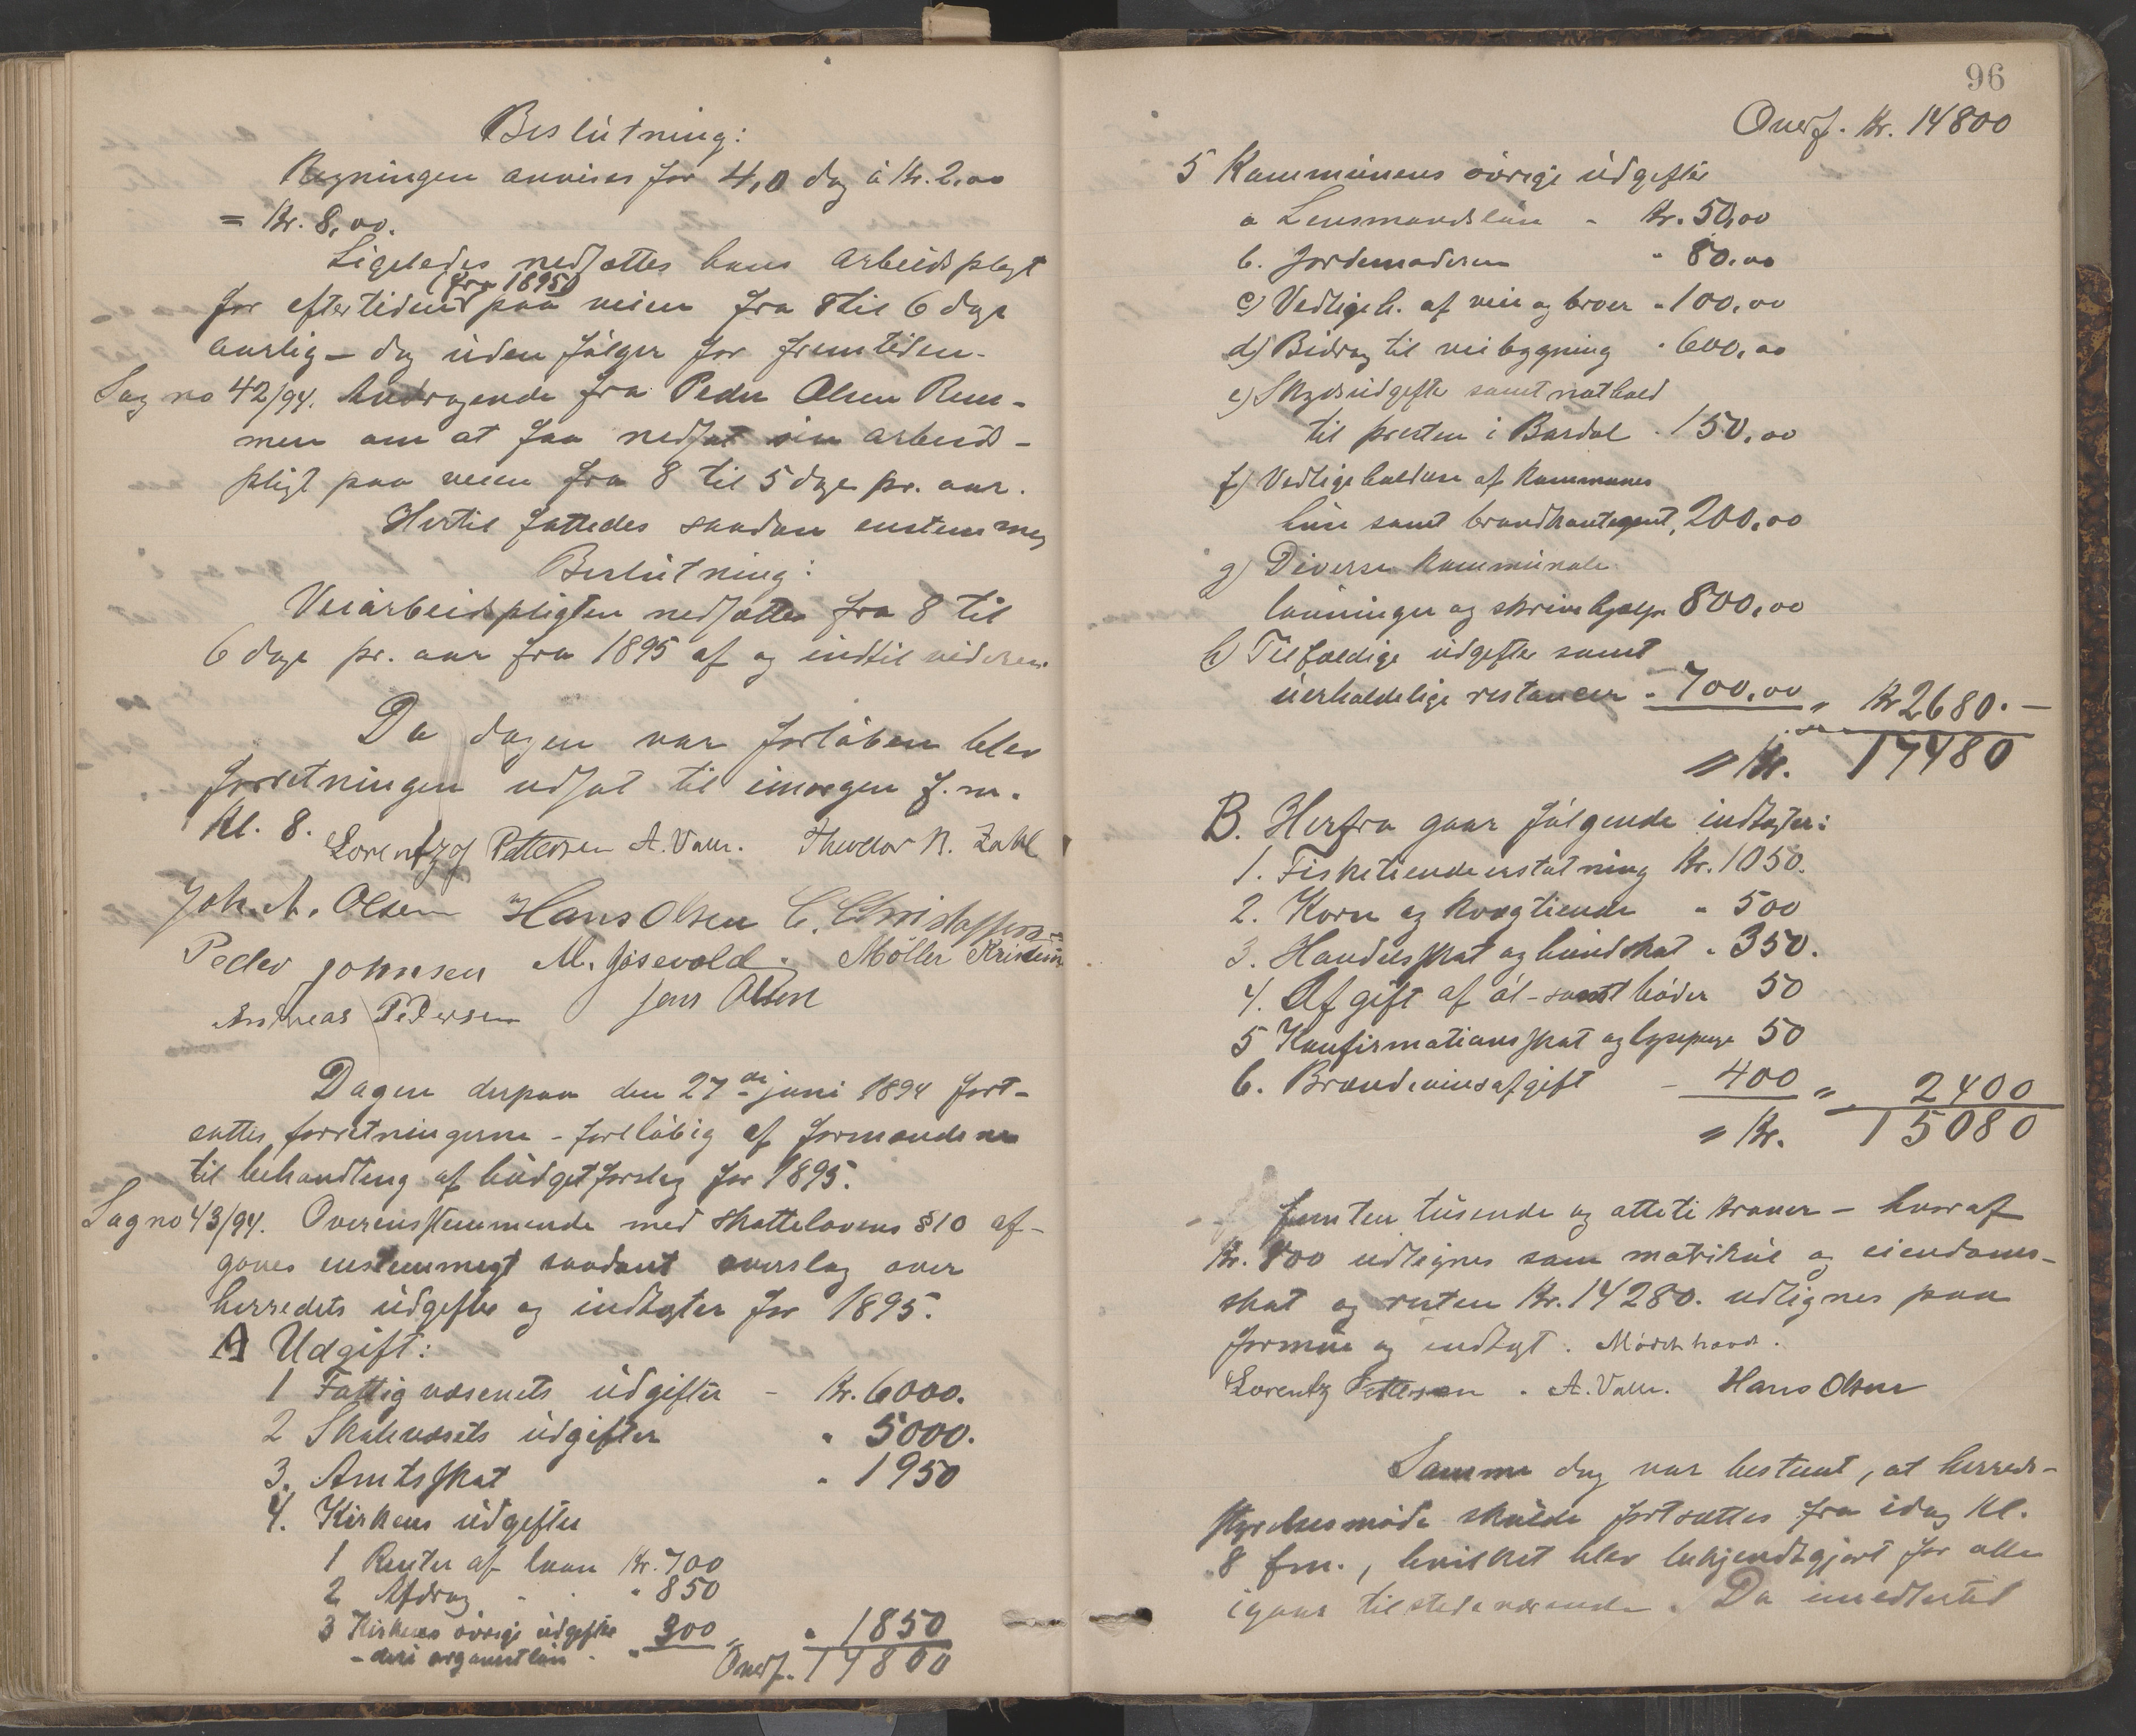 Beslutning:
Regningen anvises for 4,0 dag á Kr. 2,00
= Kr. 8,00.
Ligeledes nedsættes hans arbeidspligt
(fra 1895)
for eftertiden paa veien fra 8 til 6 dage
aarlig - dog uden følger for fremtiden.
Sag no 42/94. Andragende fra Peder Olsen Rem-
men om at faa nedsat sin arbeids-
pligt paa veien fra 8 til 5 dage pr. aar.
Hertil fattedes saadan enstemmig
Beslutning:
Veiarbeidspligten nedsættes fra 8 til
6 dage pr. aar fra 1895 af og indtil videre.
Da dagen var forløben blev
forretningen udsat til imorgen f.m.
Kl. 8. Lorentz Pettersen A. Valle. Theodor N. Zahl
Joh. A. Olsen Hans Olsen C. Christoffersen
Peder Johnsen M. Gjesevold. Møller Kristensen
Andreas Pedersen Jens Olsen
Dagen derpaa den 27de juni 1894 fort-
sattes forretningerne - foreløbig af formændene
til behandling af budgetforslag for 1895.
Sag no 43/94. Overensstemmende med skattelovens §10 af-
gaves enstemmigt saadant overslag over
herredets udgifter og indtægter for 1895.
A Udgift:
1 Fattigvæsenets udgifter - Kr. 6000.
2 Skolevæsets udgifter " 5000.
3. Amtsskat " 1950
4. Kirkens udgifter
1 Renter af laan Kr. 700
2 Afdrag " " 850
3 Kirkens øvrige udgifter 300 " " 1850
- deri organistløn " Overf. 14800
96
Overf. Kr. 14800
5 Kommunens øvrige udgifter
a Lensmandsløn - Kr. 50,00
b. Jordemoderen " 80,00
c) Vedligeh. af veie og broer " 100,00
d) Bidrag til veibygning " 600,00
e) Skydsudgifter samt nathold
til presten i Bardal " 150,00
f) Vedligeholdelse af kommunes
hus samt brandkontegent, 200,00
g) Diverse kommunale
lønninger og skrivehjælp 800,00
h) Tilfældige udgifter samt
uerholdelige restancer " 700,00 " Kr 2680.-
= Kr. 17480
B. Herfra gaar følgende indtægter:
1. Fisketiendeerstatning Kr. 1050.
2. Korn og kvægtiende " 500
3. Handelsskat og hundskat " 350.
4. Afgift af øl - samt bøder 50
5 Konfirmationsskat og lysepenge 50
6. Brændevinsafgift - 400 = 2400
= Kr. 15080
femten tusende og otteti kroner - hvoraf
Kr. 800 udlignes som matrikul og eiendoms-
skat og resten Kr. 14280. udlignes paa
formue og indtægt.
Lorentz Pettersen. A. Valle. Hans Olsen
Samme dag var bestemt, at herreds-
styrelsesmøde skulde fortsættes fra idag kl.
8 fm., hvilket blev bekjendtgjort for alle
igaar tilstedeværende. Da imedlertid